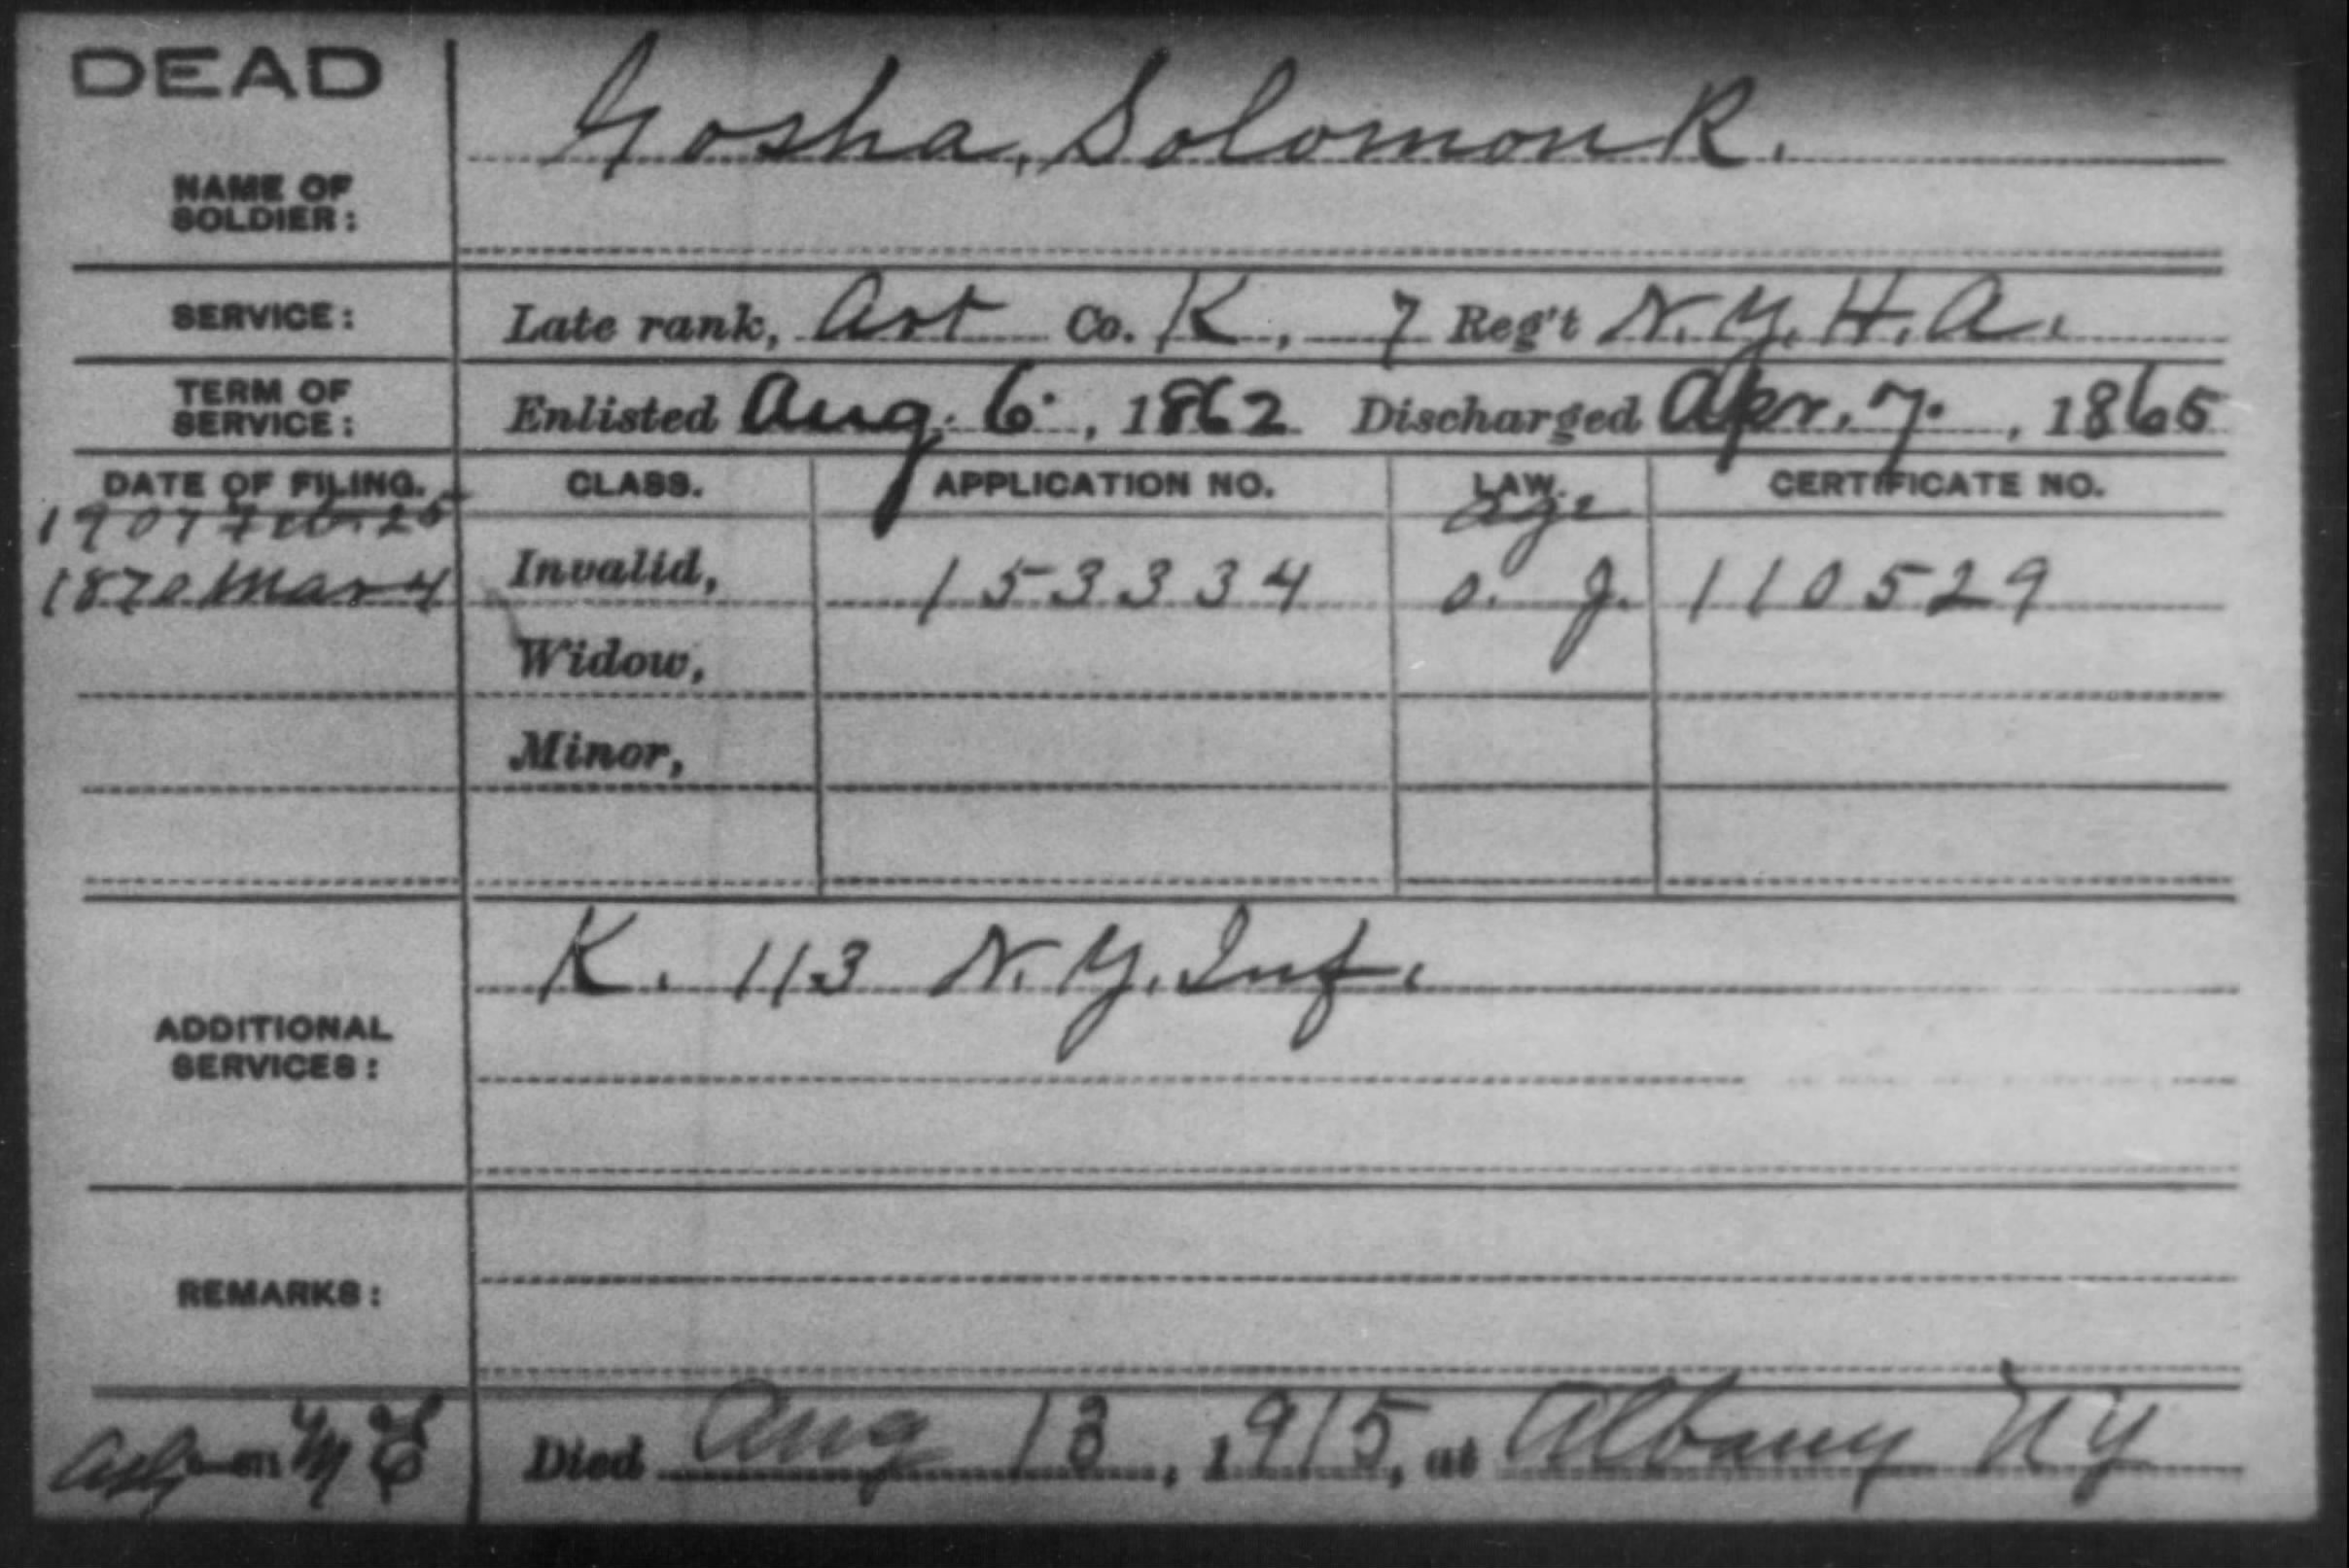 DEAD
Gosha, Solomon R.
NAME OF
SOLDIER:
SERVICE: Late rank, Art Co. K, 7 Reg't N.Y.H.A.
TERM OF
SERVICE: Enlisted Aug. 6, 1862 Discharged Apr. 7, 1865
DATE OF FILING. CLASS. APPLICATION NO. LAW. CERTIFICATE NO.
1907 Feb. 25 Age
1870 Mar 4 Invalid, 153334 O. J. 110529
Widow,
Minor,
K. 113 N.Y. Inf.
ADDITIONAL
SERVICES:
REMARKS:
Died Aug 13, 1915, at Albany NY